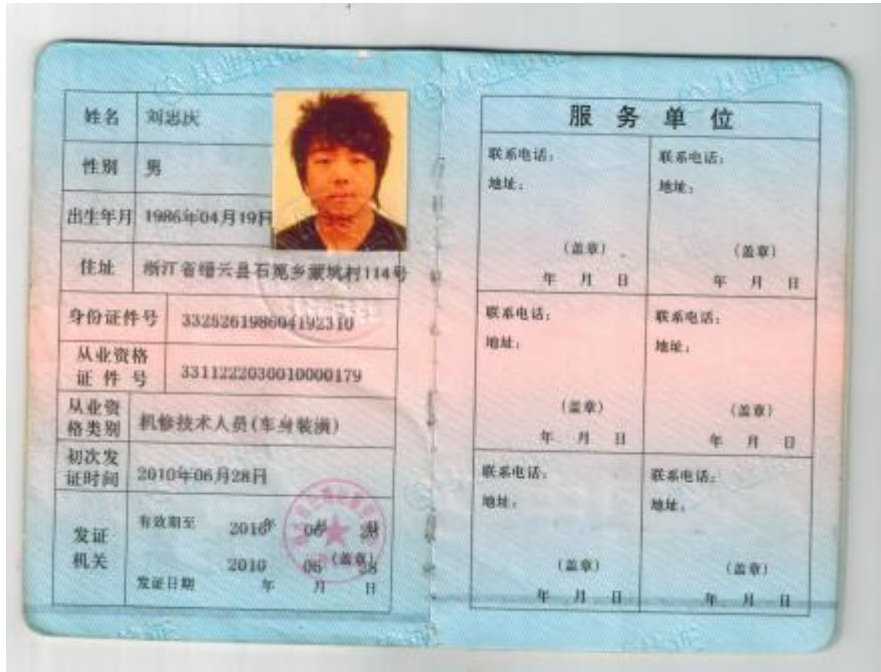 姓名 刘思庆
性别 男
出生年月 1986年04月19日
住址 浙江省缙云县石笕乡 坑村114号
身份证件号 332526198604192310
从业资格
证件号 3311222030010000179
从业资
格类别 机修技术人员(车身装潢)
初次发
证时间 2010年06月28日
发证
机关
有效期至 2016年 06月 28日
(盖章)
2010 06 28
发证日期 年 月 日
服务单位
联系电话: 联系电话:
地址: 地址:
(盖章) (盖章)
年 月 日 年 月 日
联系电话: 联系电话:
地址: 地址:
(盖章) (盖章)
年 月 日 年 月 日
联系电话: 联系电话:
地址: 地址:
(盖章) (盖章)
年 月 日 年 月 日